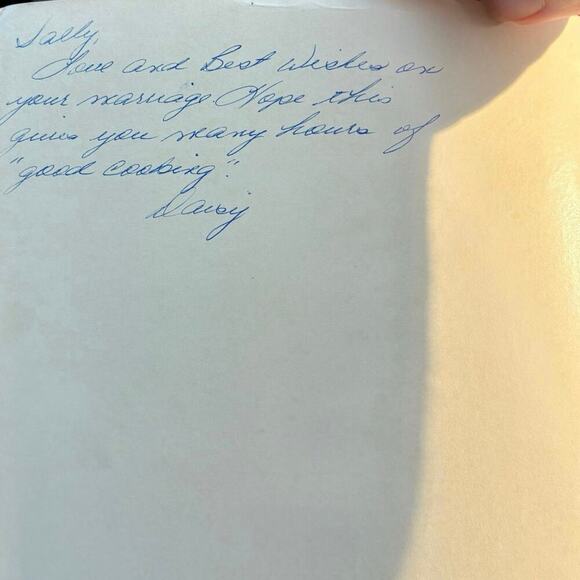 Sally,
Love and Best Wishes on
your marriage Hope this
gives you many hours of
"good cooking".
Daisy